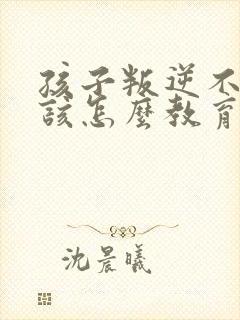 孩子叛逆不
該怎麼教育
沈晨曦